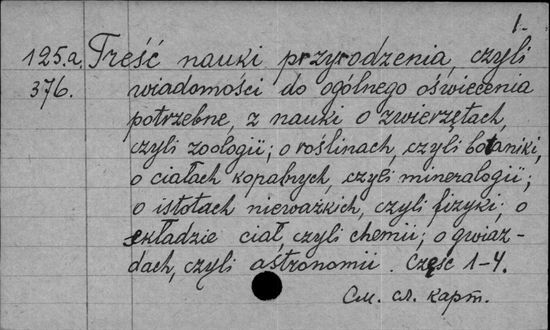 1.
125.a. Treść nauki przyrodzenia, czyli
376. wiadomości do ogólnego oświecenia
potrzebne, z nauki o zwierzętach,
czyli zoologii; o roślinach, czyli botaniki,
o ciałach kopalnych, czyli mineralogii;
o istotach nieważkich, czyli fizyki; o
składzie ciał, czyli chemii; o gwiaz-
dach, czyli astronomii. Część 1-4.
См. сл. карт.